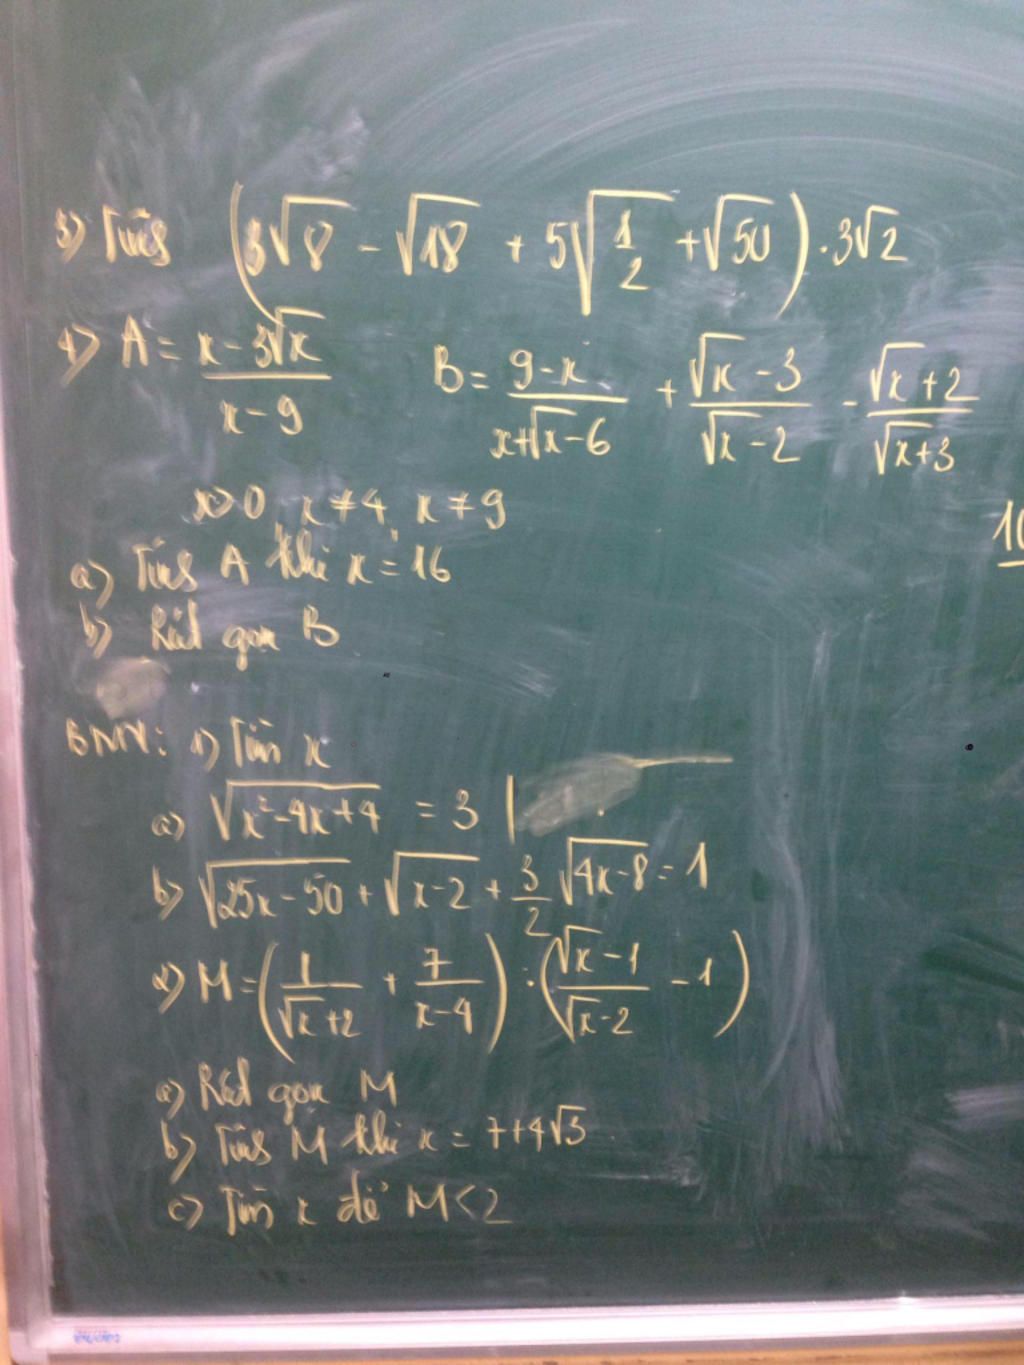 3) Tính (3√8 - √18 + 5√(1/2) + √50) · 3√2
4) A = (x - 3√x)/(x - 9) B = (9 - x)/(x + √x - 6) + (√x - 3)/(√x - 2) - (√x + 2)/(√x + 3)
x > 0, x ≠ 4, x ≠ 9
10
a) Tính A khi x = 16
b) Rút gọn B
BNV: 1) Tìm x
a) √(x² - 4x + 4) = 3
b) √(25x - 50) + √(x - 2) + 3/2 √(4x - 8) = 1
2) M = (1/(√x + 2) + 7/(x - 4)) : ((√x - 1)/(√x - 2) - 1)
a) Rút gọn M
b) Tính M khi x = 7 + 4√3
c) Tìm x để M < 2